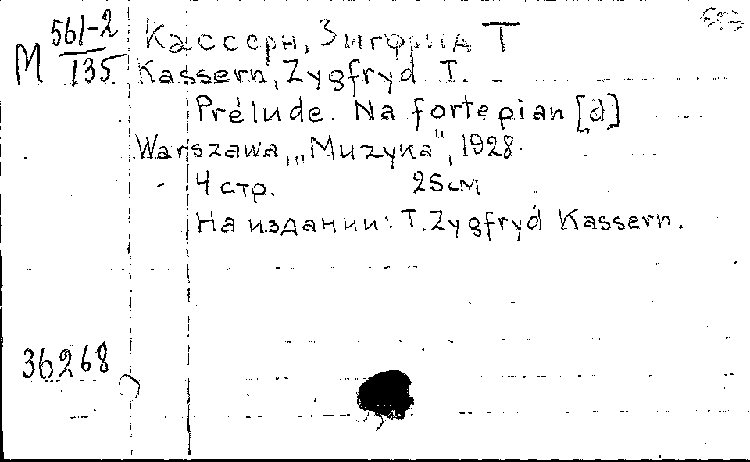 М 561-2
135
Кассерн, Зигфрид Т
Kassern, Zygfryd T.
Prélude. Na fortepian [d]
Warszawa, „Muzyka", 1928.
4 стр. 25 см
На издании: T. Zygfryd Kassern.
36268